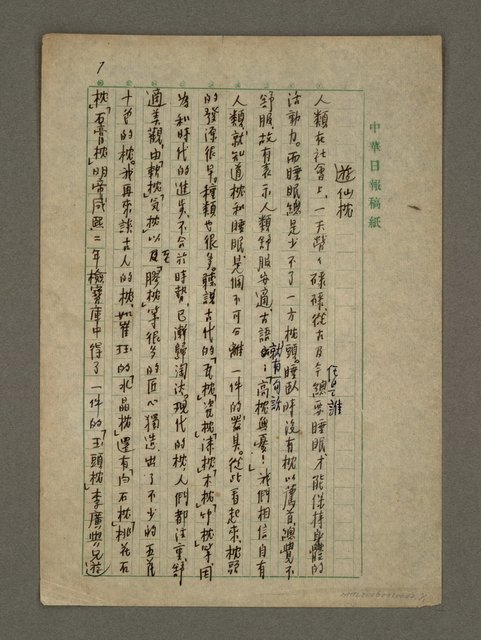 中華日報稿紙
遊仙枕
人類在社會上，一天勞勞碌碌，從古及今，任是誰總要睡眠才能保持身體的
活動力。而睡眠總是少不了一方枕頭。睡臥時沒有枕以薦首，總覺不
舒服，故有表示人類舒服安適，古語就有一句話：「高枕無憂！」我們相信自有
人類，就知道枕和睡眠，是個不可分離一件的器具。從此看起來，枕頭
的發源很早。種類也很多。聽說古代的「瓦枕」「瓷枕」「漆枕」「木枕」「竹枕」等，因
為和時代的進步，不合於時勢，已漸歸淘汰。現代的枕，人們都注重舒
適美觀，由「軟枕」「氣枕」以至「膠枕」等，很多的匠心獨造，出了不少的五花
十色的枕。我再來談古人的枕，如崔珏的「水晶枕」，還有「向石枕」「桃花石
枕」「石膏枕」，明帝咸熙二年檢寶庫中得了一件的「玉頭枕」，李廣與兄遊
1